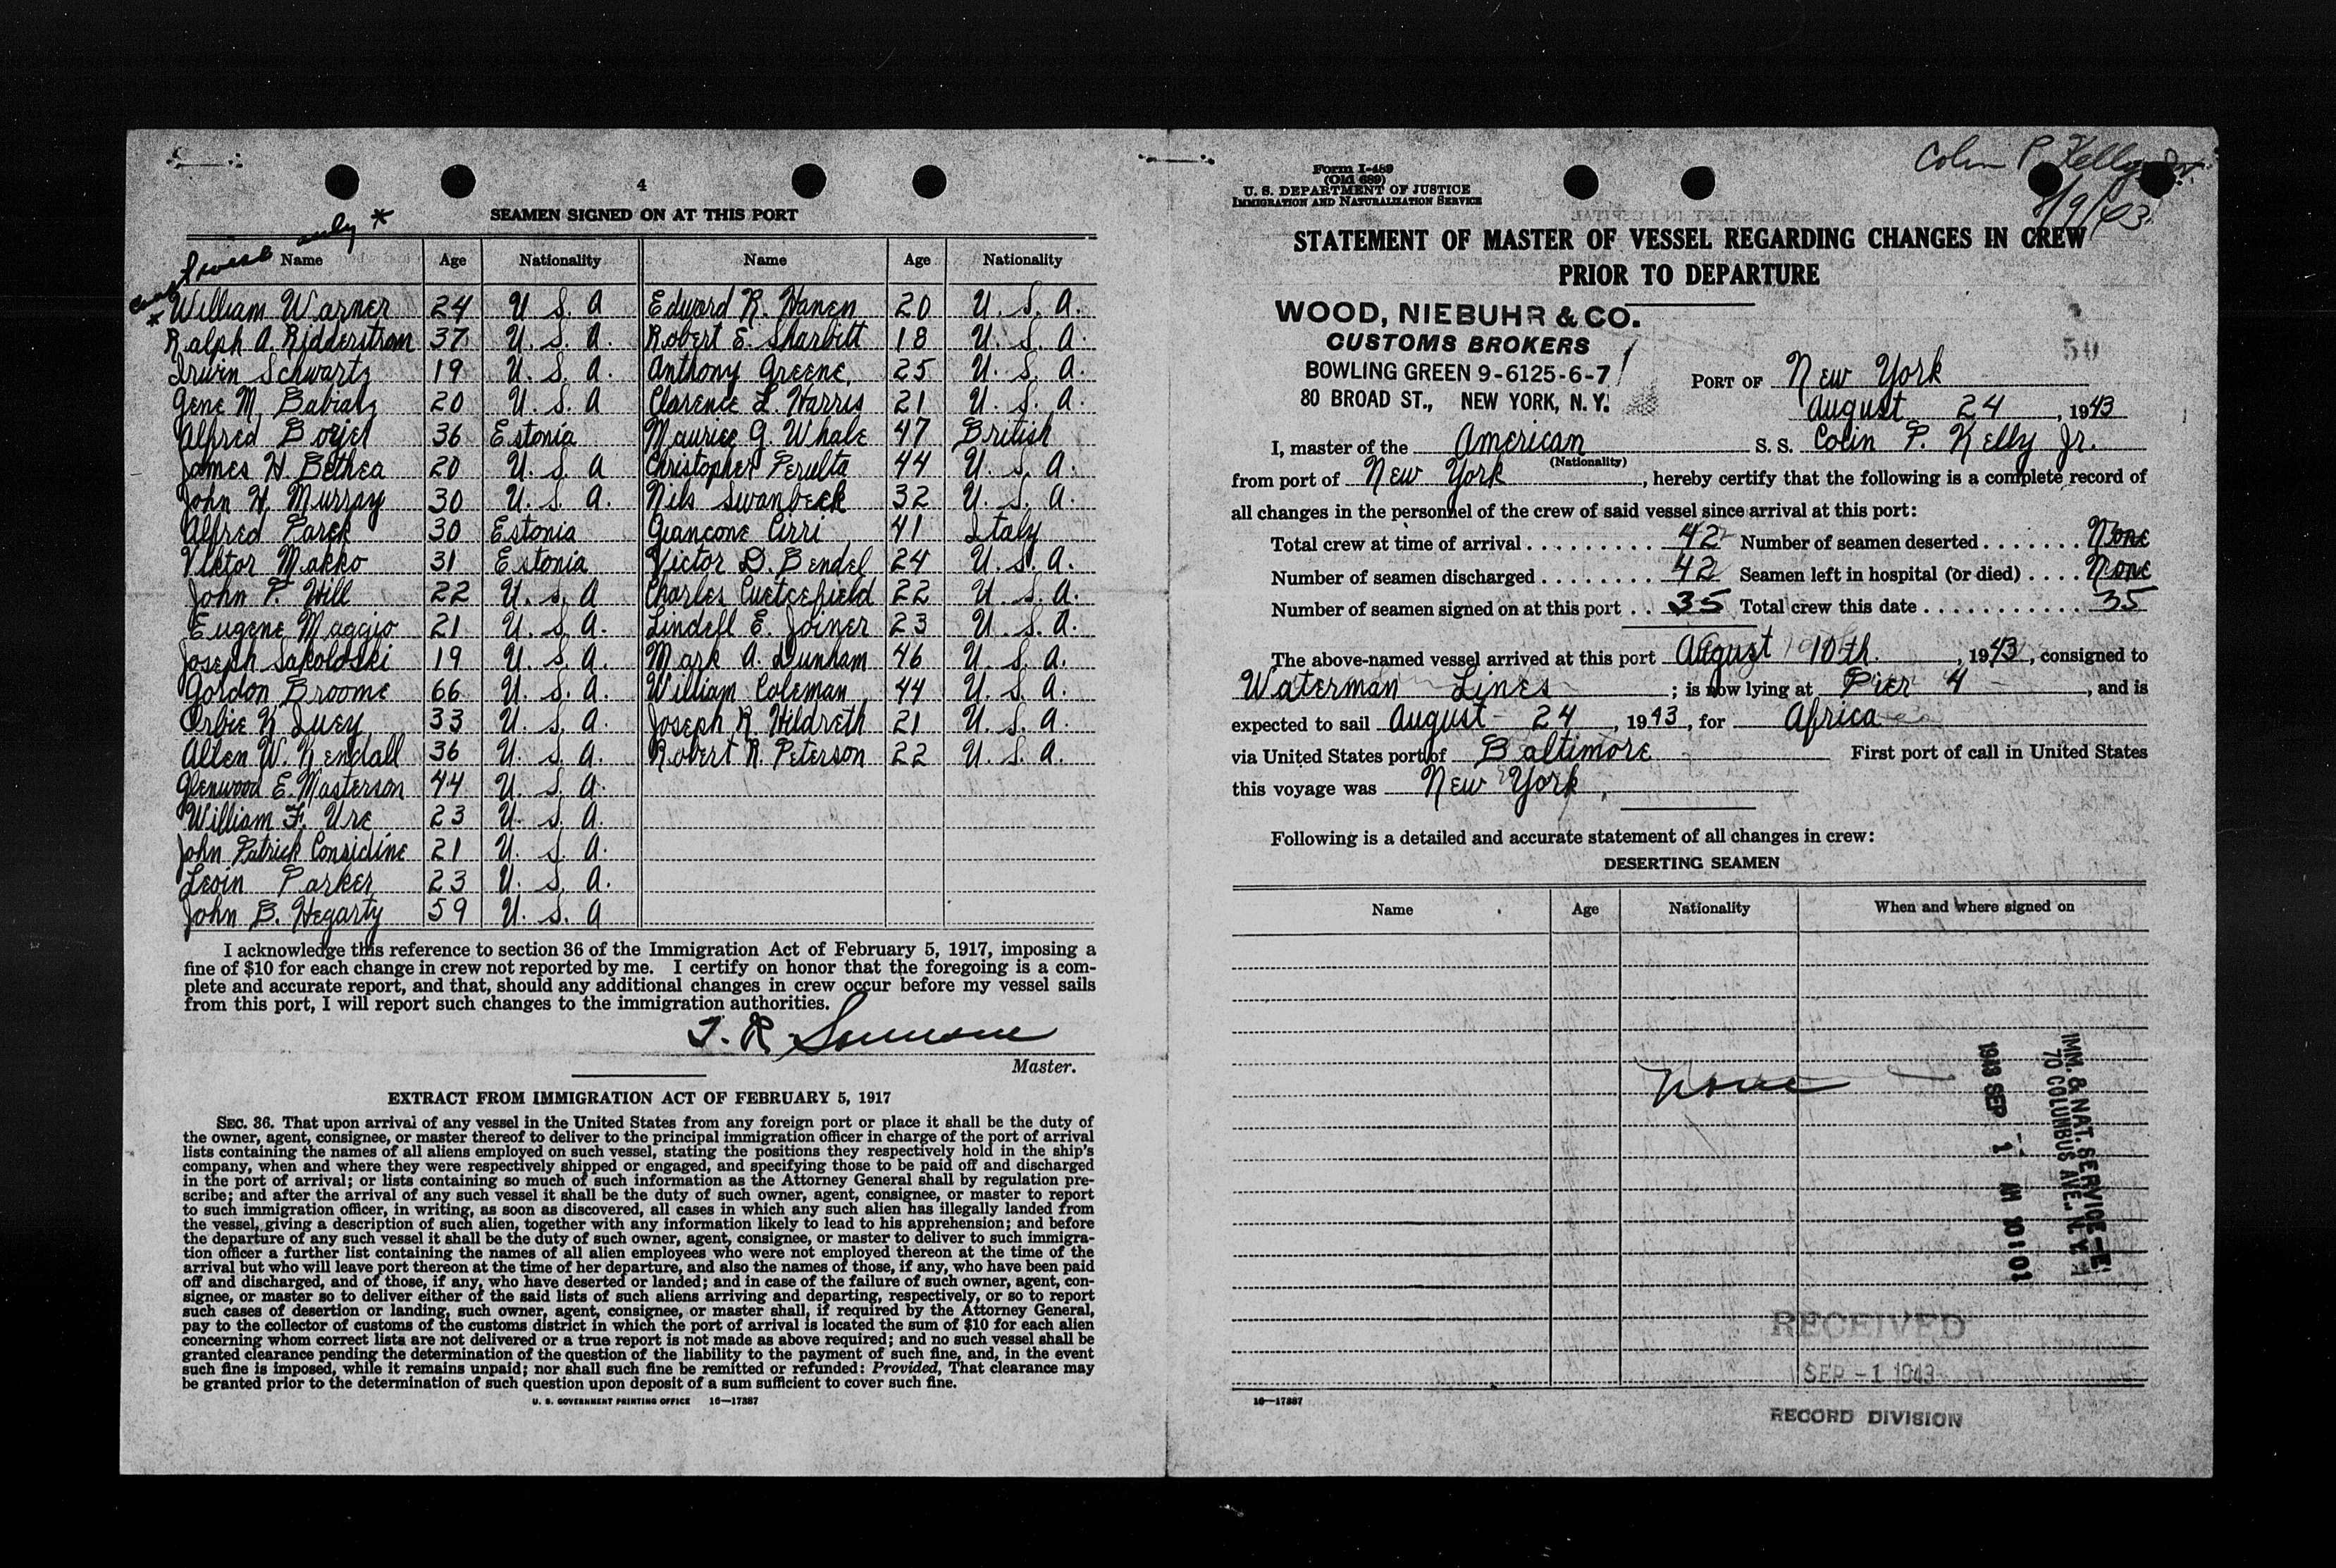 4
SEAMEN SIGNED ON AT THIS PORT
only *
Name Age Nationality Name Age Nationality
* William Warner 24 U S A Edward R. Hanen 20 U. S. A.
Ralph A. Ridderstrom 37 U. S. A. Robert E. Sharbitt 18 U. S. A.
Irwin Schwartz 19 U. S. A. Anthony Greene, 25 U. S. A.
Gene M. Babiatz 20 U. S. A Clarence L. Harris 21 U. S. A.
Alfred Borjel 36 Estonia Maurice G. Whale 47 British
James H. Bethea 20 U. S. A Christopher Perulta 44 U. S. A.
John H. Murray 30 U. S. A. Nils Swanbeck 32 U. S. A.
Alfred Parek 30 Estonia Giancone Cirri 41 Italy
Viktor Makko 31 Estonia Victor D. Bendel 24 U. S. A.
John P. Will 22 U. S. A Charles 22 U. S. A.
Eugene Maggio 21 U. S. A. Lindell E. Joiner 23 U. S. A.
Joseph Sakoloski 19 U. S. A. Mark A. Dunham 46 U. S. A.
Gordon Broome 66 U. S. A. William Coleman 44 U. S. A.
Orbie K. Luey 33 U. S. A. Joseph R. Hildreth 21 U. S. A.
Allen W. Kendall 36 U. S. A. Robert R. Peterson 22 U. S. A.
Glenwood E. Masterson 44 U. S. A.
William F. Ure 23 U. S. A.
John Patrick Considine 21 U. S. A.
Leoin Parker 23 U. S. A.
John B. Hegarty 59 U. S. A
I acknowledge this reference to section 36 of the Immigration Act of February 5, 1917, imposing a
fine of $10 for each change in crew not reported by me. I certify on honor that the foregoing is a com-
plete and accurate report, and that, should any additional changes in crew occur before my vessel sails
from this port, I will report such changes to the immigration authorities.
Master.
EXTRACT FROM IMMIGRATION ACT OF FEBRUARY 5, 1917
SEC. 36. That upon arrival of any vessel in the United States from any foreign port or place it shall be the duty of
the owner, agent, consignee, or master thereof to deliver to the principal immigration officer in charge of the port of arrival
lists containing the names of all aliens employed on such vessel, stating the positions they respectively hold in the ship's
company, when and where they were respectively shipped or engaged, and specifying those to be paid off and discharged
in the port of arrival; or lists containing so much of such information as the Attorney General shall by regulation pre-
scribe; and after the arrival of any such vessel it shall be the duty of such owner, agent, consignee, or master to report
to such immigration officer, in writing, as soon as discovered, all cases in which any such alien has illegally landed from
the vessel, giving a description of such alien, together with any information likely to lead to his apprehension; and before
the departure of any such vessel it shall be the duty of such owner, agent, consignee, or master to deliver to such immigra-
tion officer a further list containing the names of all alien employees who were not employed thereon at the time of the
arrival but who will leave port thereon at the time of her departure, and also the names of those, if any, who have been paid
off and discharged, and of those, if any, who have deserted or landed; and in case of the failure of such owner, agent, con-
signee, or master so to deliver either of the said lists of such aliens arriving and departing, respectively, or so to report
such cases of desertion or landing, such owner, agent, consignee, or master shall, if required by the Attorney General,
pay to the collector of customs of the customs district in which the port of arrival is located the sum of $10 for each alien
concerning whom correct lists are not delivered or a true report is not made as above required; and no such vessel shall be
granted clearance pending the determination of the question of the liability to the payment of such fine, and, in the event
such fine is imposed, while it remains unpaid; nor shall such fine be remitted or refunded: Provided, That clearance may
be granted prior to the determination of such question upon deposit of a sum sufficient to cover such fine.
U. S. GOVERNMENT PRINTING OFFICE 16—17387
Colin P Kelly Jr.
8/9/43
Form I-489
(Old 689)
U. S. DEPARTMENT OF JUSTICE
IMMIGRATION AND NATURALIZATION SERVICE
STATEMENT OF MASTER OF VESSEL REGARDING CHANGES IN CREW
PRIOR TO DEPARTURE
WOOD, NIEBUHR & CO.
CUSTOMS BROKERS
BOWLING GREEN 9-6125-6-7
80 BROAD ST., NEW YORK, N. Y.
50
PORT OF New York
August 24, 1943
I, master of the American S. S. Colin P. Kelly Jr.
(Nationality)
from port of New York, hereby certify that the following is a complete record of
all changes in the personnel of the crew of said vessel since arrival at this port:
Total crew at time of arrival . . . . . . . . . 42 Number of seamen deserted . . . . . . . None
Number of seamen discharged . . . . . . . . 42 Seamen left in hospital (or died) . . . . None
Number of seamen signed on at this port . . 35 Total crew this date . . . . . . . . . . . . 35
The above-named vessel arrived at this port August 10th, 1943, consigned to
Waterman Lines; is now lying at Pier 4, and is
expected to sail August 24, 1943, for Africa
via United States port of Baltimore First port of call in United States
this voyage was New York.
Following is a detailed and accurate statement of all changes in crew:
DESERTING SEAMEN
Name Age Nationality When and where signed on
None
IMM. & NAT. SERVICE
70 COLUMBUS AVE. N. Y.
1943 SEP 1 AM 10:01
RECEIVED
SEP -1 1943
RECORD DIVISION
16—17387